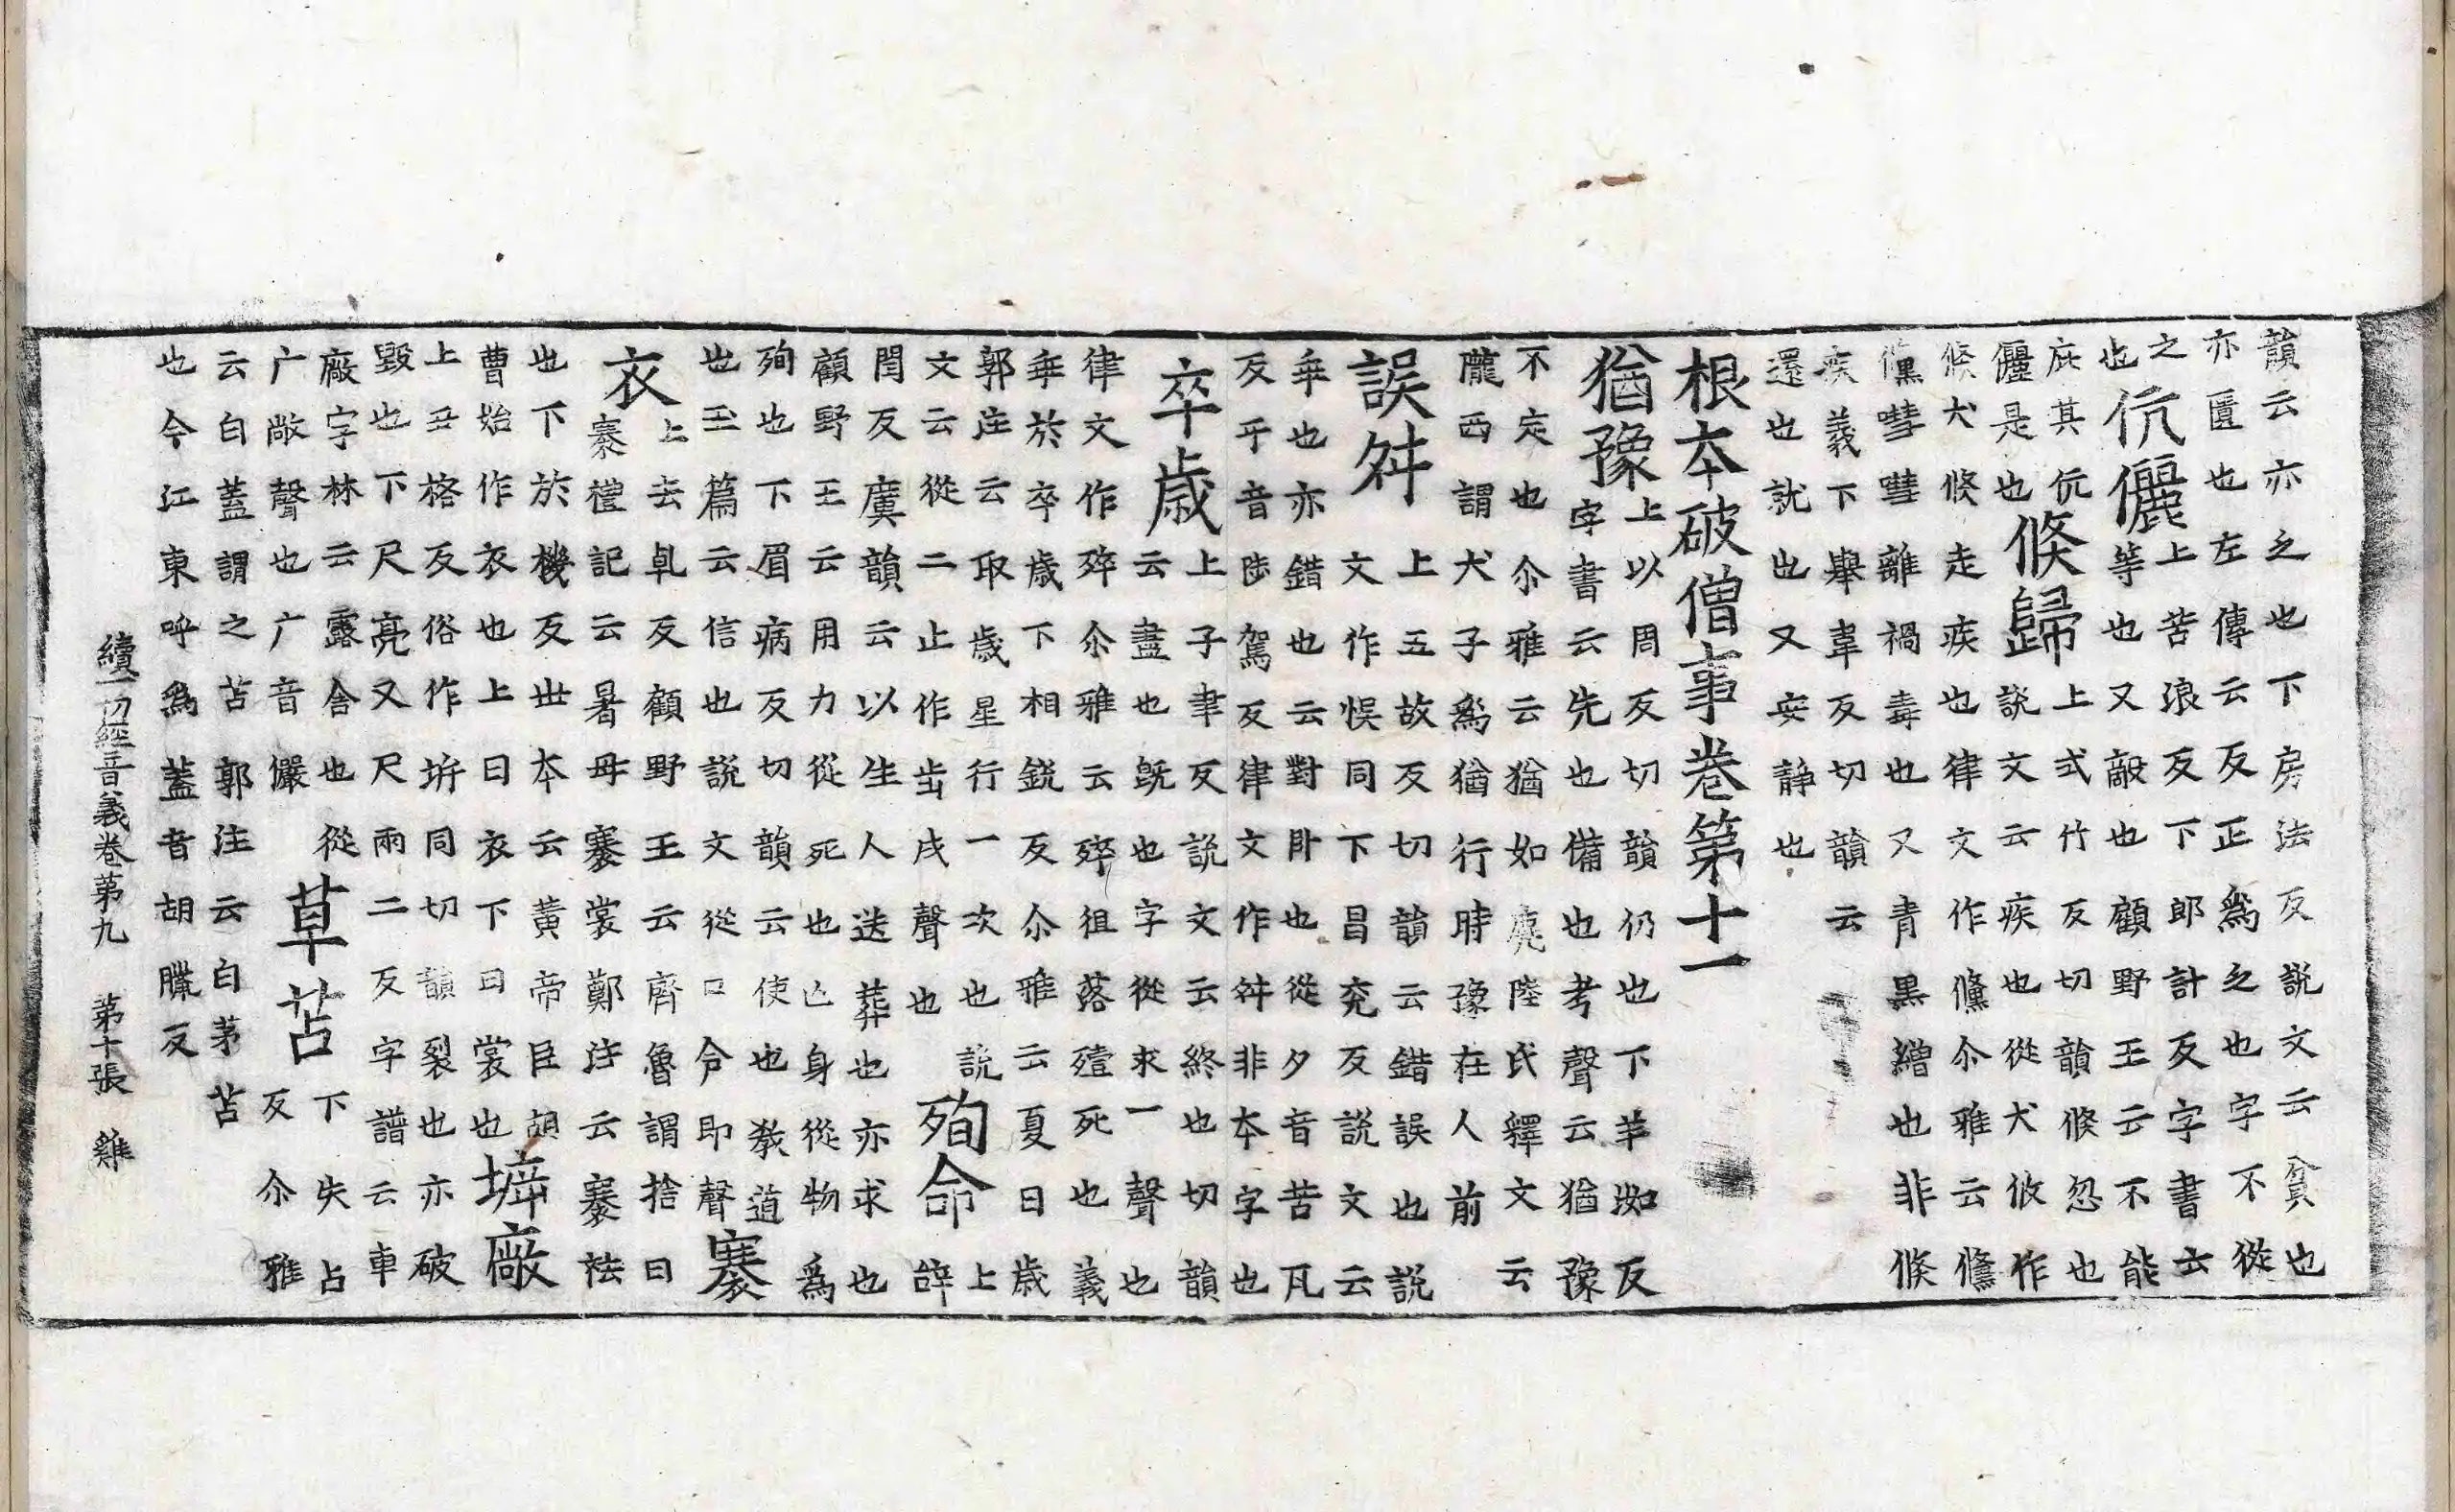 韻云亦乏也下房法反說文云貧也
亦匱也左傳云反正爲乏也字不從
之
也伉儷上苦浪反下郎計反字書云
等也又敵也顧野王云不能
庇其伉
儷是也倏歸上式竹反切韻倏忽也
說文云疾也從犬攸作
倏犬倏走疾也律文作儵尒雅云儵
儵嘒嘒離禍毒也又青黑繒也非倏
疾義下舉韋反切韻云
還也就也又安靜也
根本破僧事卷第十一
猶豫上以周反切韻仍也下羊洳反
字書云先也備也考聲云猶豫
不定也尒雅云猶如麂陸氏釋文云
隴西謂犬子爲猶猶行時豫在人前
誤舛上五故反切韻云錯誤也說
文作悮同下昌兖反說文云
舛也亦錯也云對臥也從夕音苦瓦
反㐄音陟駕反律文作舛非本字也
卒歲上子聿反說文云終也切韻
云盡也旣也字從求一聲也
律文作殌尒雅云殌徂落殪死也義
乖於卒歲下相銳反尒雅云夏曰歲
郭注云取歲星行一次也說
文云從二止作歩戌聲也殉命上辝
閏反廣韻云以生人送葬也亦求也
顧野王云用力從死也亡身從物爲
殉也下眉病反切韻云使也教道
也玉篇云信也說文從口令即聲褰
衣上去乹反顧野王云齊魯謂捨曰
褰禮記云暑毋褰裳鄭注云褰袪
也下於機反世本云黃帝臣胡
曹始作衣也上曰衣下曰裳也㙤廠
上丑格反俗作坼同切韻裂也亦破
毀也下尺亮又尺兩二反字譜云車
廠字林云露舍也從
广敞聲也广音儼草苫下失占
反尒雅
云白蓋謂之苫郭注云白茅苫
也今江東呼爲蓋音胡臘反
續一切經音義卷第九　第十張　雞